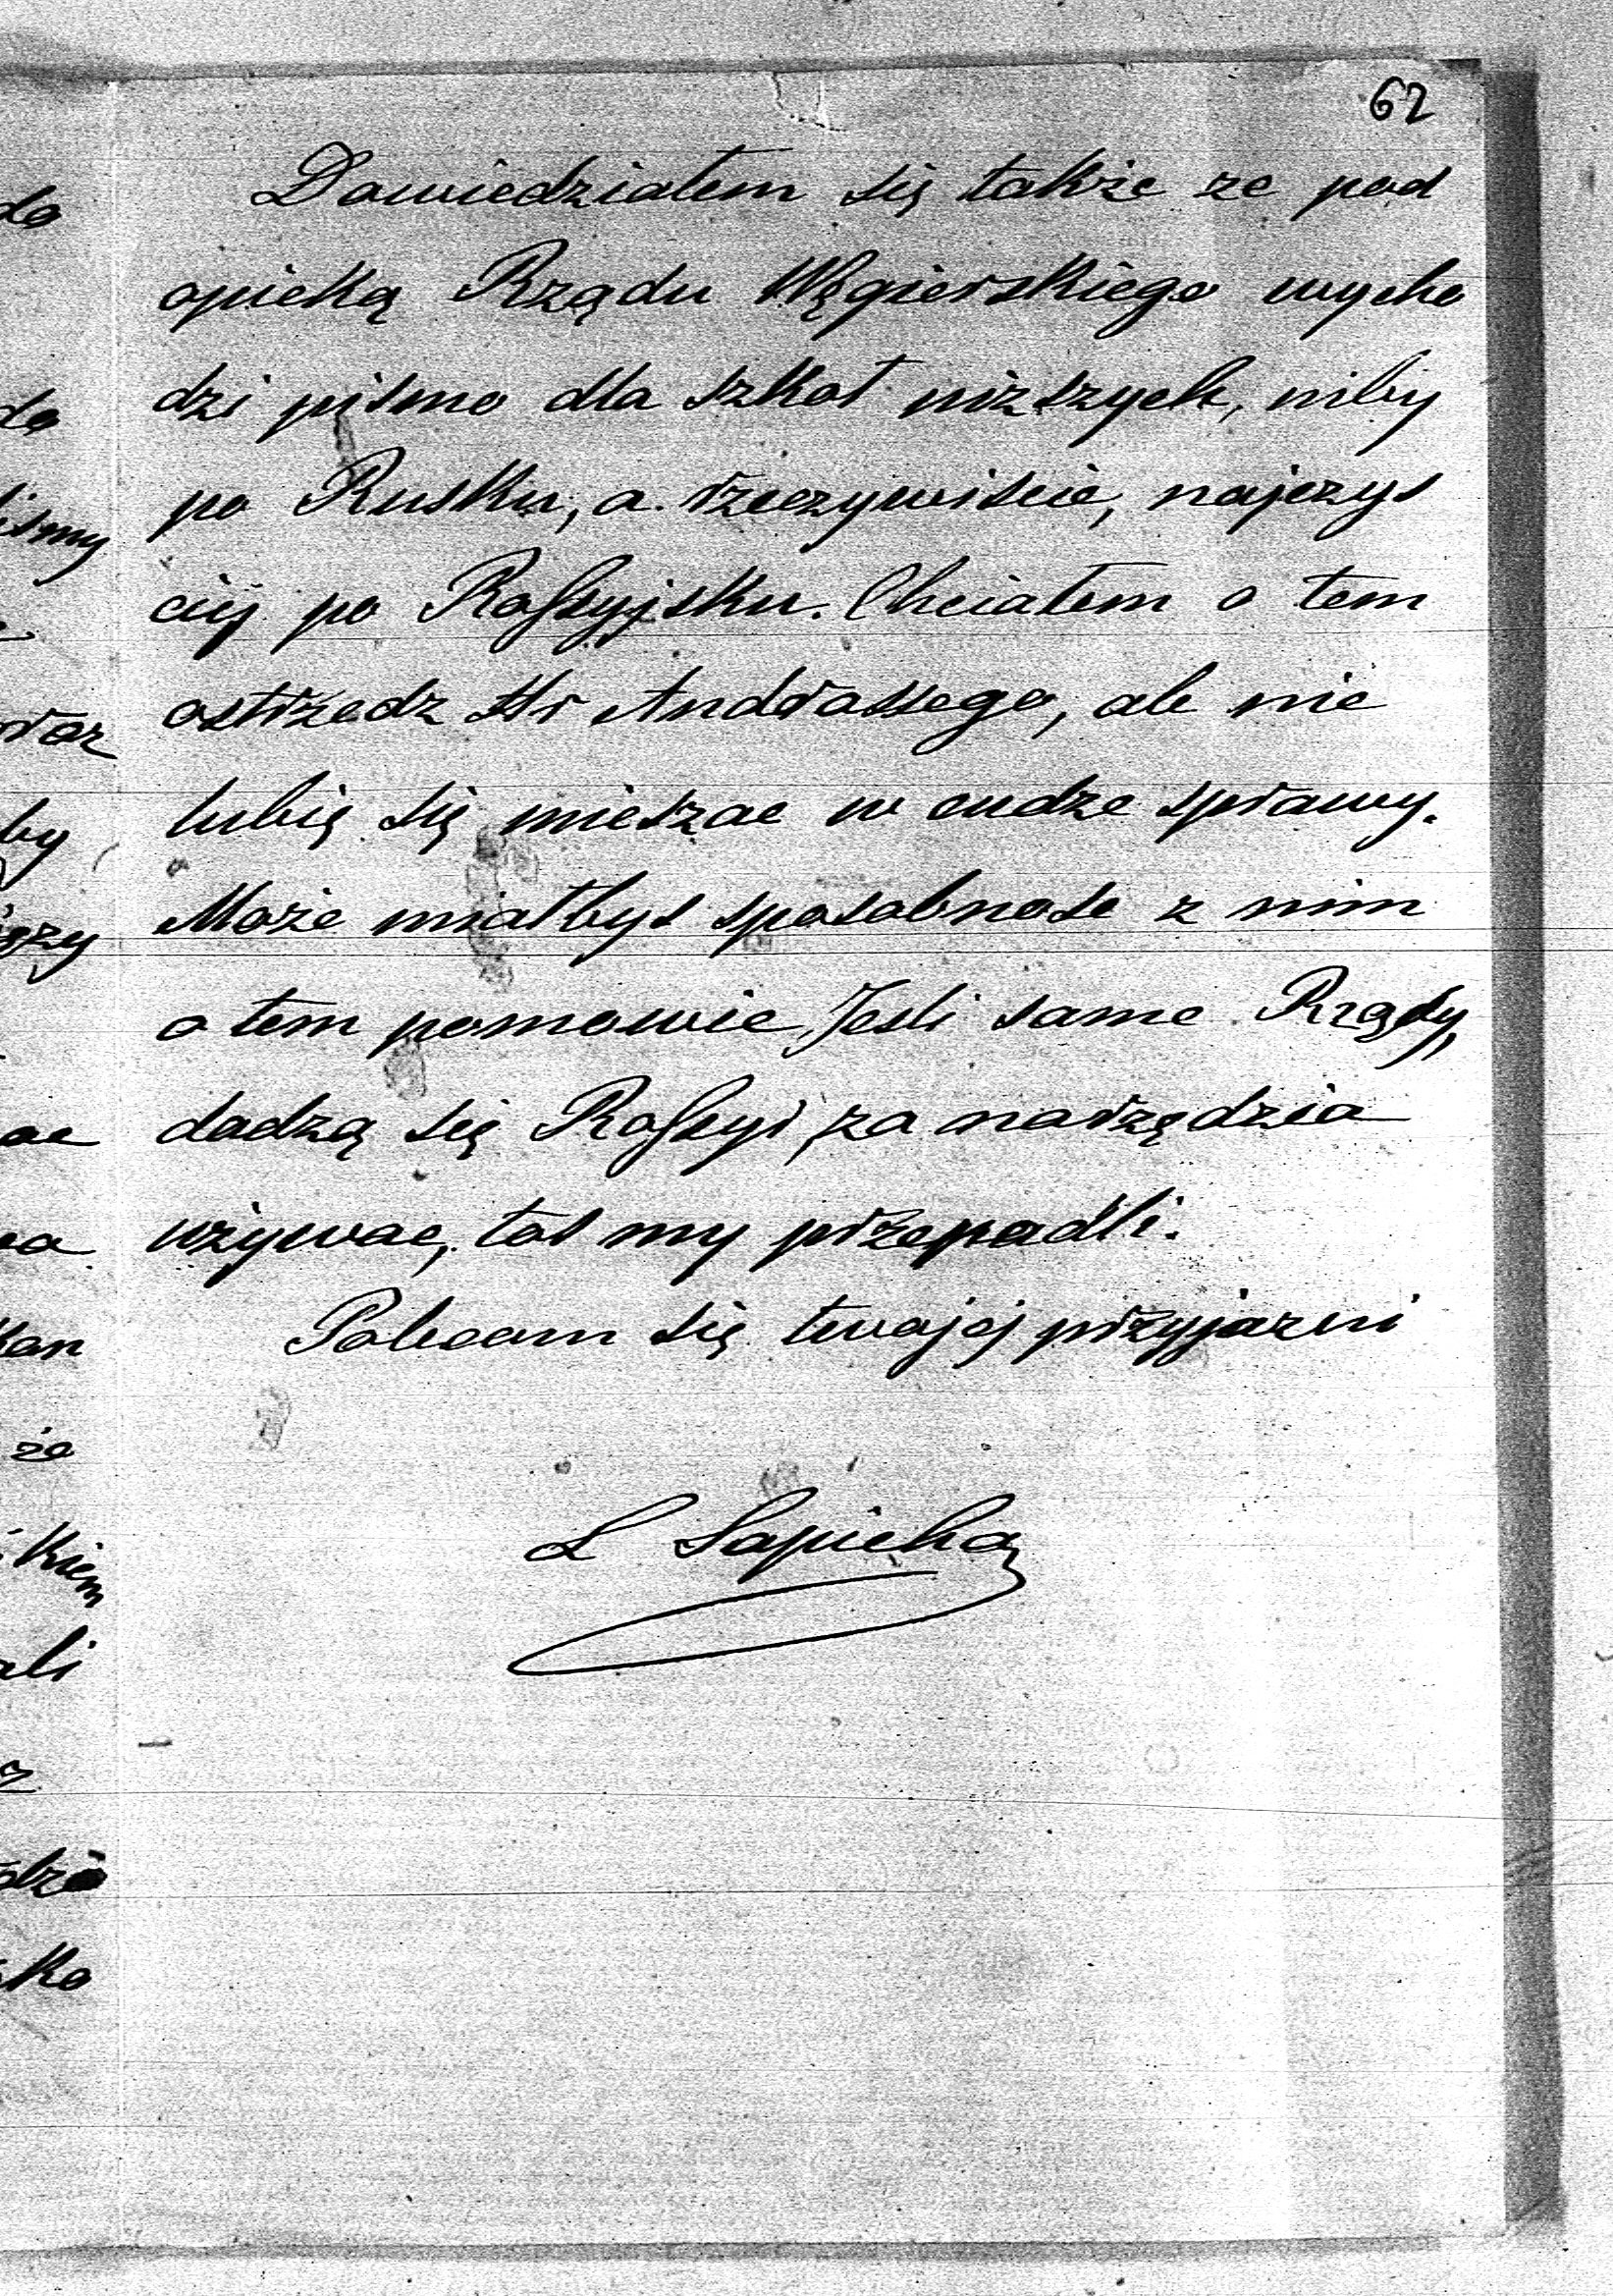 62
Dowiedziałem się także ze pod
opieką Rządu Węgierskiego wycho
dzi pismo dla szkoł niższych, niby
po Rusku, a rzeczywiscie, najczys
ciej po Rossyjsku. Chciałem o tem
ostrzedz Hr Andrassego, ale nie
lubię się mieszac w cudze sprawy.
Może miałbys sposobnosc z nim
o tem pomowic, Jesli same Rządy,
dadzą się Rossyi, za narzędzia
używac, tos my przepadli.
Polecam się twojej przyjazni
L Sapieha